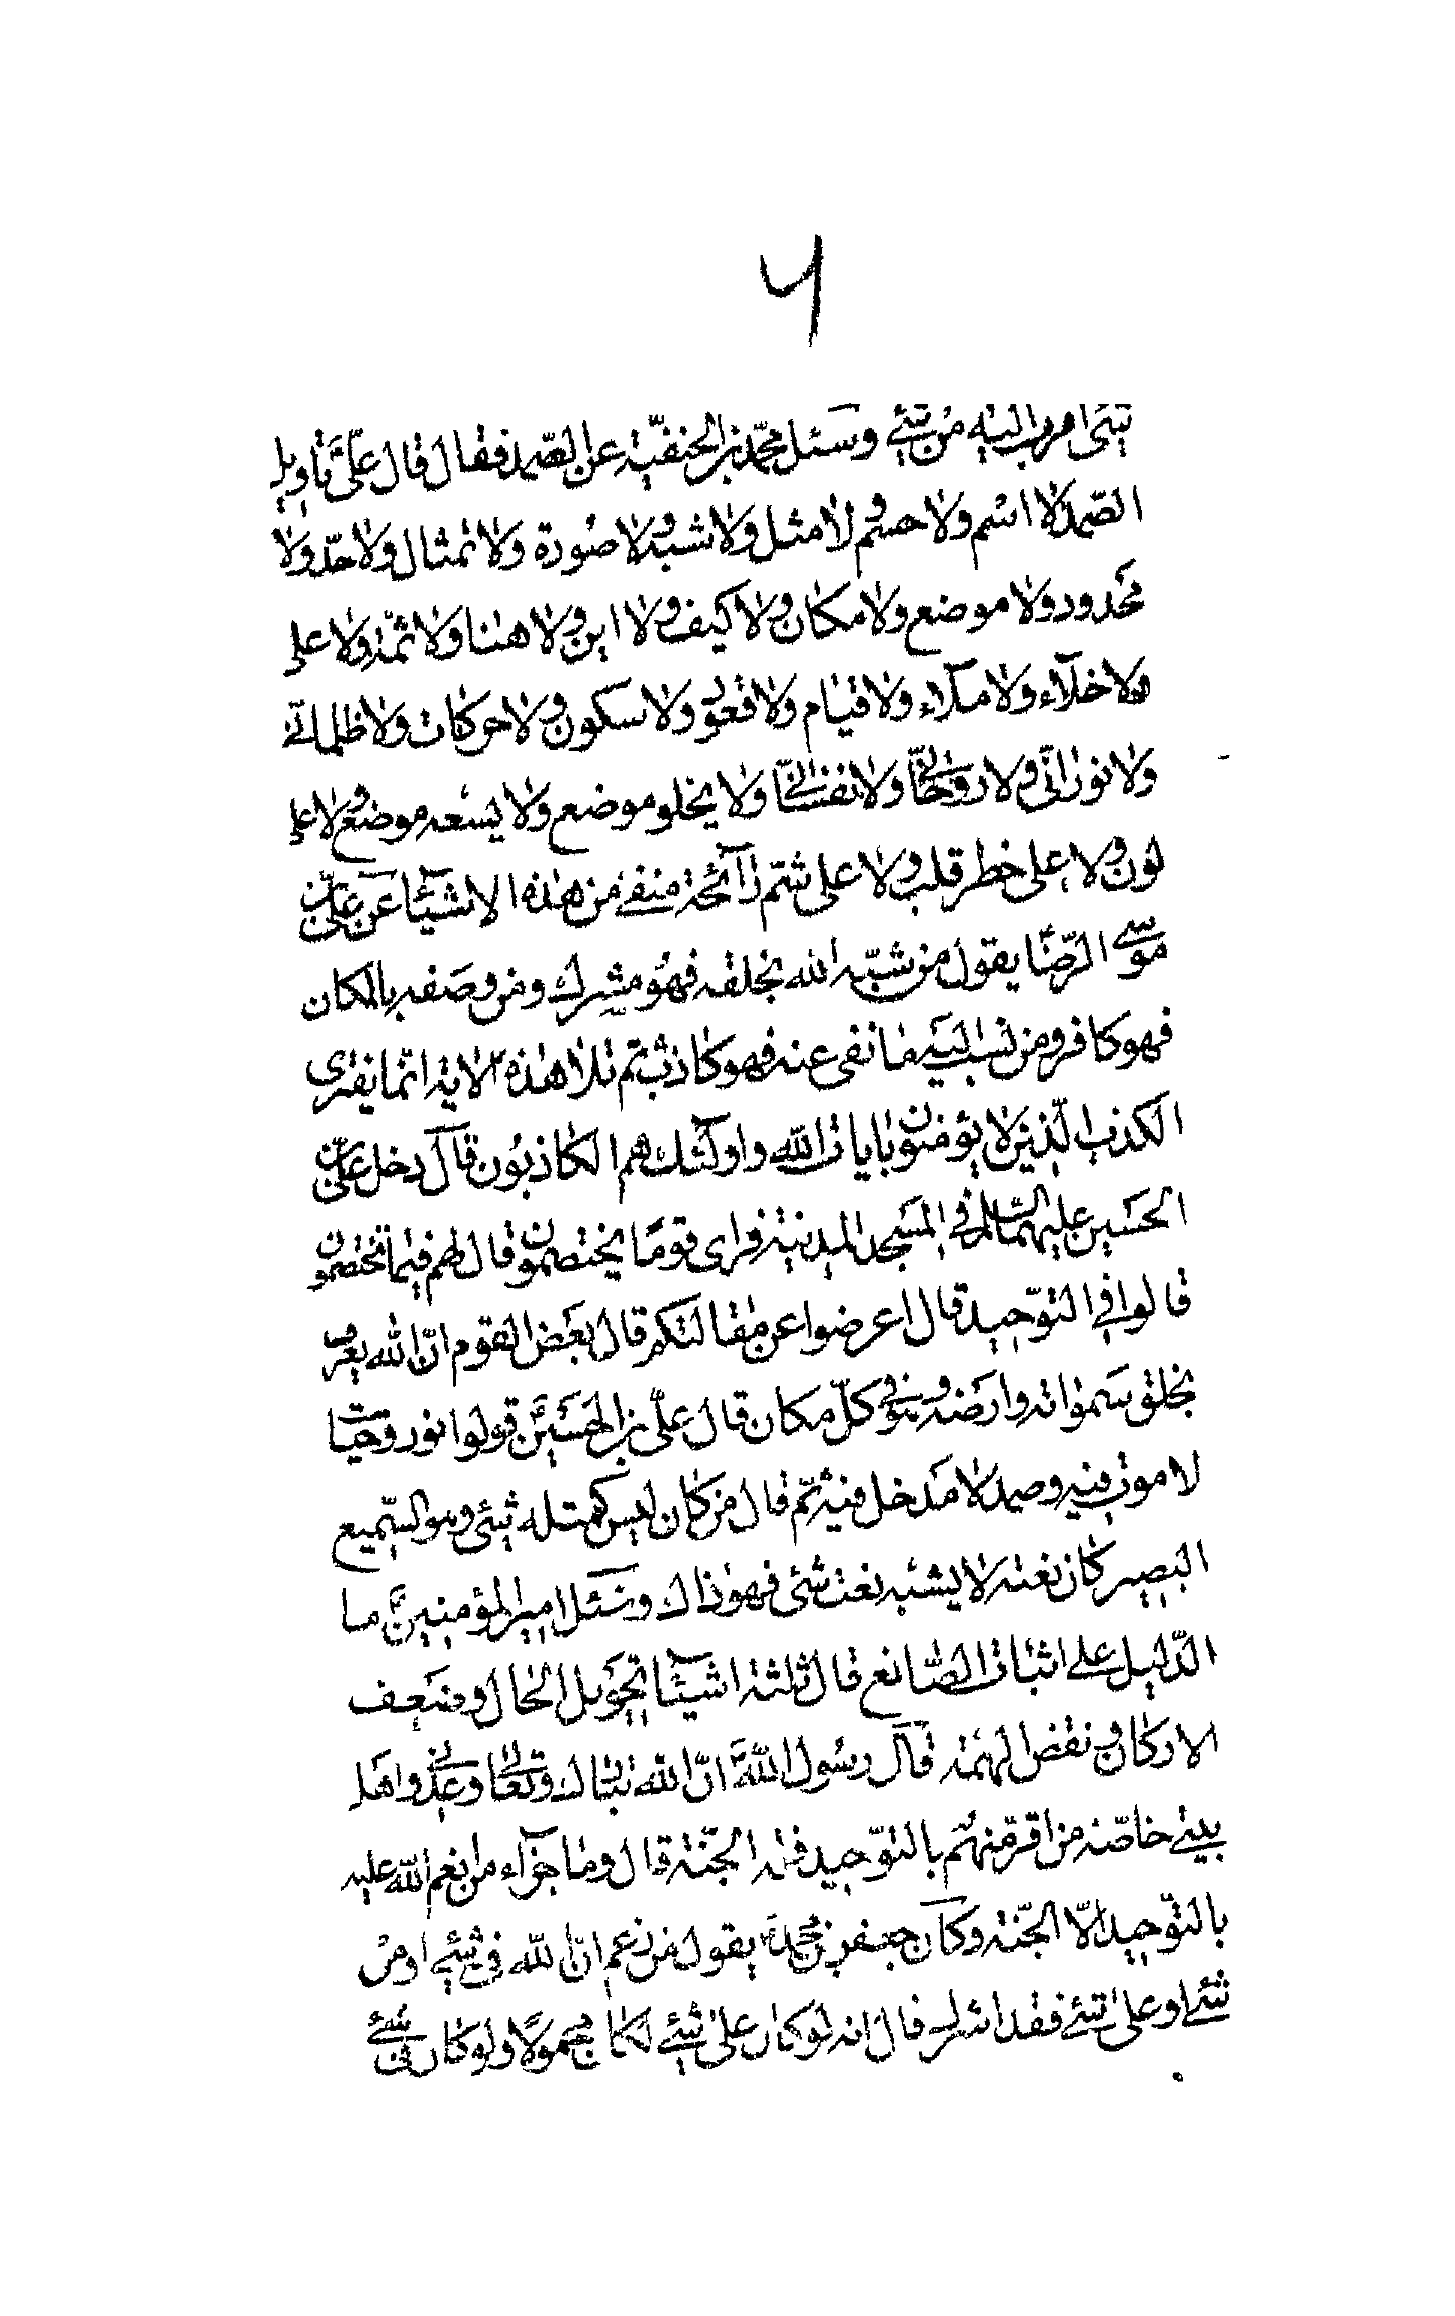 ٦
شئ اقرب اليه من شئ وسئل محمّد بن الحنفيّة عن الصّمد فقال قال علىّ تاويل
الصّمد لا اسم ولا جسم ولا مثل ولا شبه ولا صورة ولا تمثال ولا حدّ ولا
محدود ولا موضع ولا مكان ولا كيف ولا اين ولا هنا ولا ثمّة ولا على
ولا خلآء ولا ملآء ولا قيام ولا قعود ولا سكون ولا حركات ولا ظلمانى
ولا نورانى ولا روحانى ولا نفسانى ولا يخلو موضع ولا يسعه موضع ولا على
لون ولا على خطر قلب ولا على شمّ رآئحة منفى من هذه الاشيآء عن علىّ بن
موسى الرّضا يقول من شبّه الله بخلقه فهو مشرك ومن وصفه بالمكان
فهو كافر ومن نسب اليه ما نفى عنه فهو كاذب ثم تلا هذه الاية انّما يفترى
الكذب الّذين لا يؤمنون بايات الله واولئك هم الكاذبون قال دخل علىّ بن
الحسين عليهما السّلام فى المسجد المدينة فراى قومًا يختصمون قال لهم فيما تختصمون
قالوا فى التوّحيد قال اعرضوا عن مقالتكم قال بعض القوم انّ الله يعرف
بخلق سمواته وارضه وهو فى كلّ مكان قال علىّ بن الحسين قولوا نور وحيات
لا موت فيه وصمد لا مدخل فيه ثمّ قال من كان ليس كمثله شئ وهو السّميع
البصير كان نعته لا يشبه نعت شئ فهو ذاك وسئل امير المؤمنين ما
الدّليل على اثبات الصّانع قال ثلثة اشيآء تحويل الحال وضعف
الاركان ونقض الهمّة قال رسول الله انّ الله تبارك وتعالى وعدنى واهل
بيتى خاصّة من اقرّ منهم بالتوّحيد فله الجنّة قال وما جزآء من انعم الله عليه
بالتوّحيد الّا الجنّة وكان جعفر بن محمد يقول من زعم انّ الله فى شئ او من
شئ او على شئ فقد اشرك قال انه لو كان على شئ لكان محمولًا ولو كان فى شئ